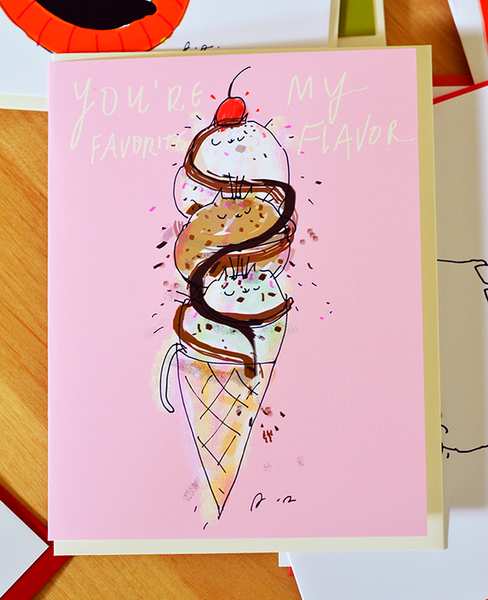 YOU'RE MY
FAVORITE FLAVOR